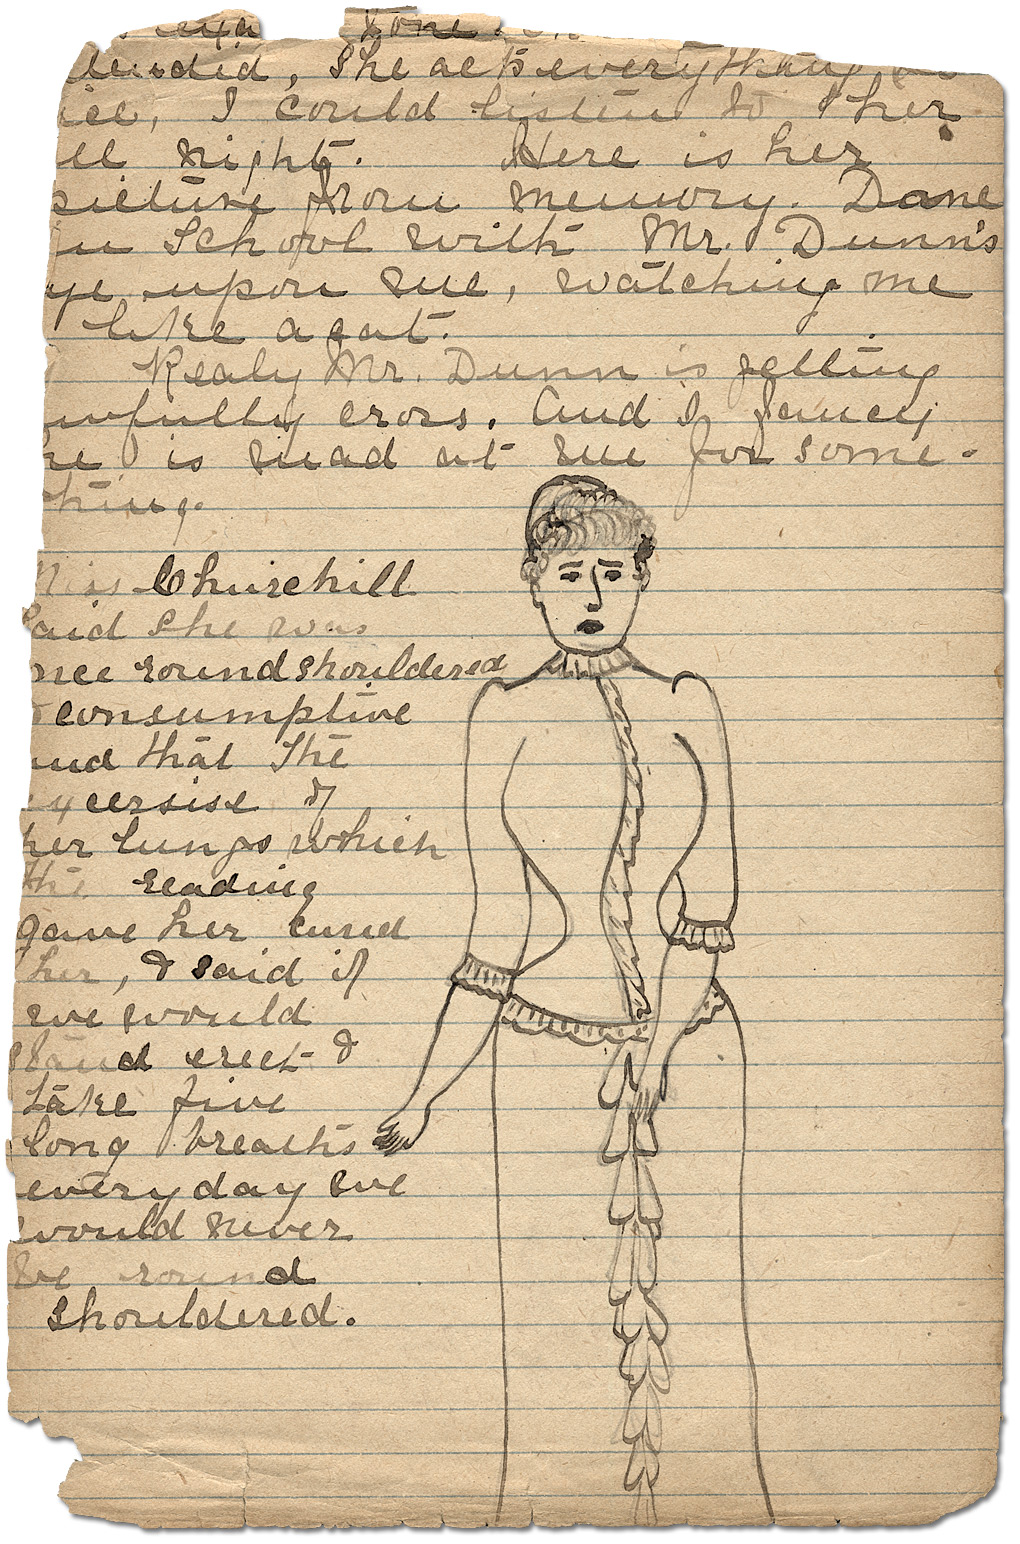 tone
did, she acts everything so
ice, I could listen to her
ll night. Here is her
picture from memory. Dane
in School with Mr. Dunn's
ye upon me, watching me
like a cat.
Realy Mr. Dunn is getting
wfully cross. And I fancy
he is mad at me for some-
thing.
Miss Churchill
said she was
once round shouldered
& consumptive
and that the
excersise of
her lungs which
the reading
gave her cured
her, & said if
we would
stand erect &
take five
long breaths
every day we
would never
be round
shouldered.